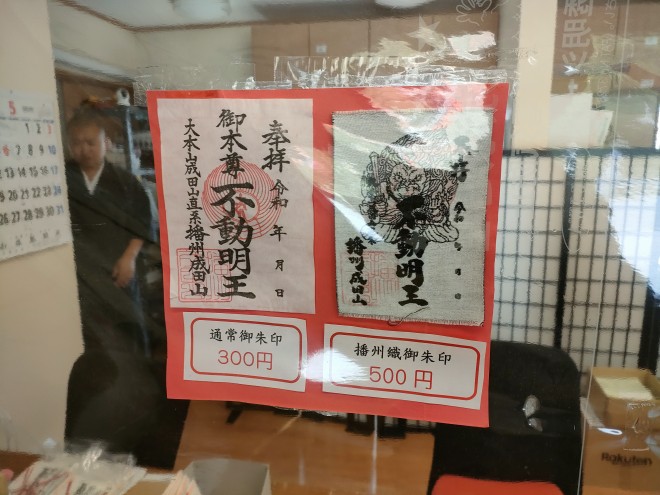 奉拝
令和 年 月 日
御本尊
不動明王
大本山成田山直系播州成田山
不動明王
播州成田山
通常御朱印
300円
播州織御朱印
500円
5
1 2 3
7 8 9 10
14 15 16 17
21 22 23 24
28 29 30 31
Rakuten